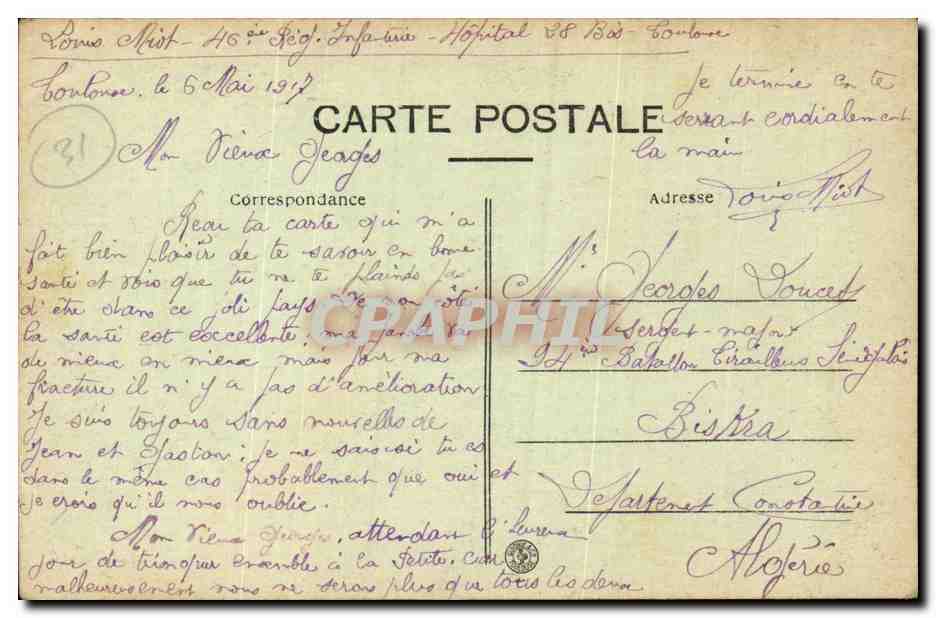 Louis Miot - 46ème Rég. Infanterie - Hôpital 28 Bis - Toulouse
Toulouse, le 6 Mai 1917
31
CARTE POSTALE
Mon Vieux Georges
Correspondance
Reçu ta carte qui m'a
fait bien plaisir de te savoir en bonne
santé et vois que tu ne te plains pas
d'être dans ce joli pays. De mon côté
la santé est excellente, ma jambe va
de mieux en mieux mais pour ma
fracture il n'y a pas d'amélioration
Je suis toujours sans nouvelles de
Jean et Gaston; je ne sais si tu es
dans le même cas probablement que oui et
je crois qu'il nous oublie.
Mon Vieux Georges, attendant l'heureux
jour de trinquer ensemble à la Petite. Car
malheureusement nous ne serons plus que tous les deux
Je termine en te
serrant cordialement
la main
Louis Miot
Adresse
Mr Georges Doucet
Sergent-major
94ème Bataillon Tirailleurs Sénégalais
Biskra
Département Constantine
Algérie
CPAPHIL